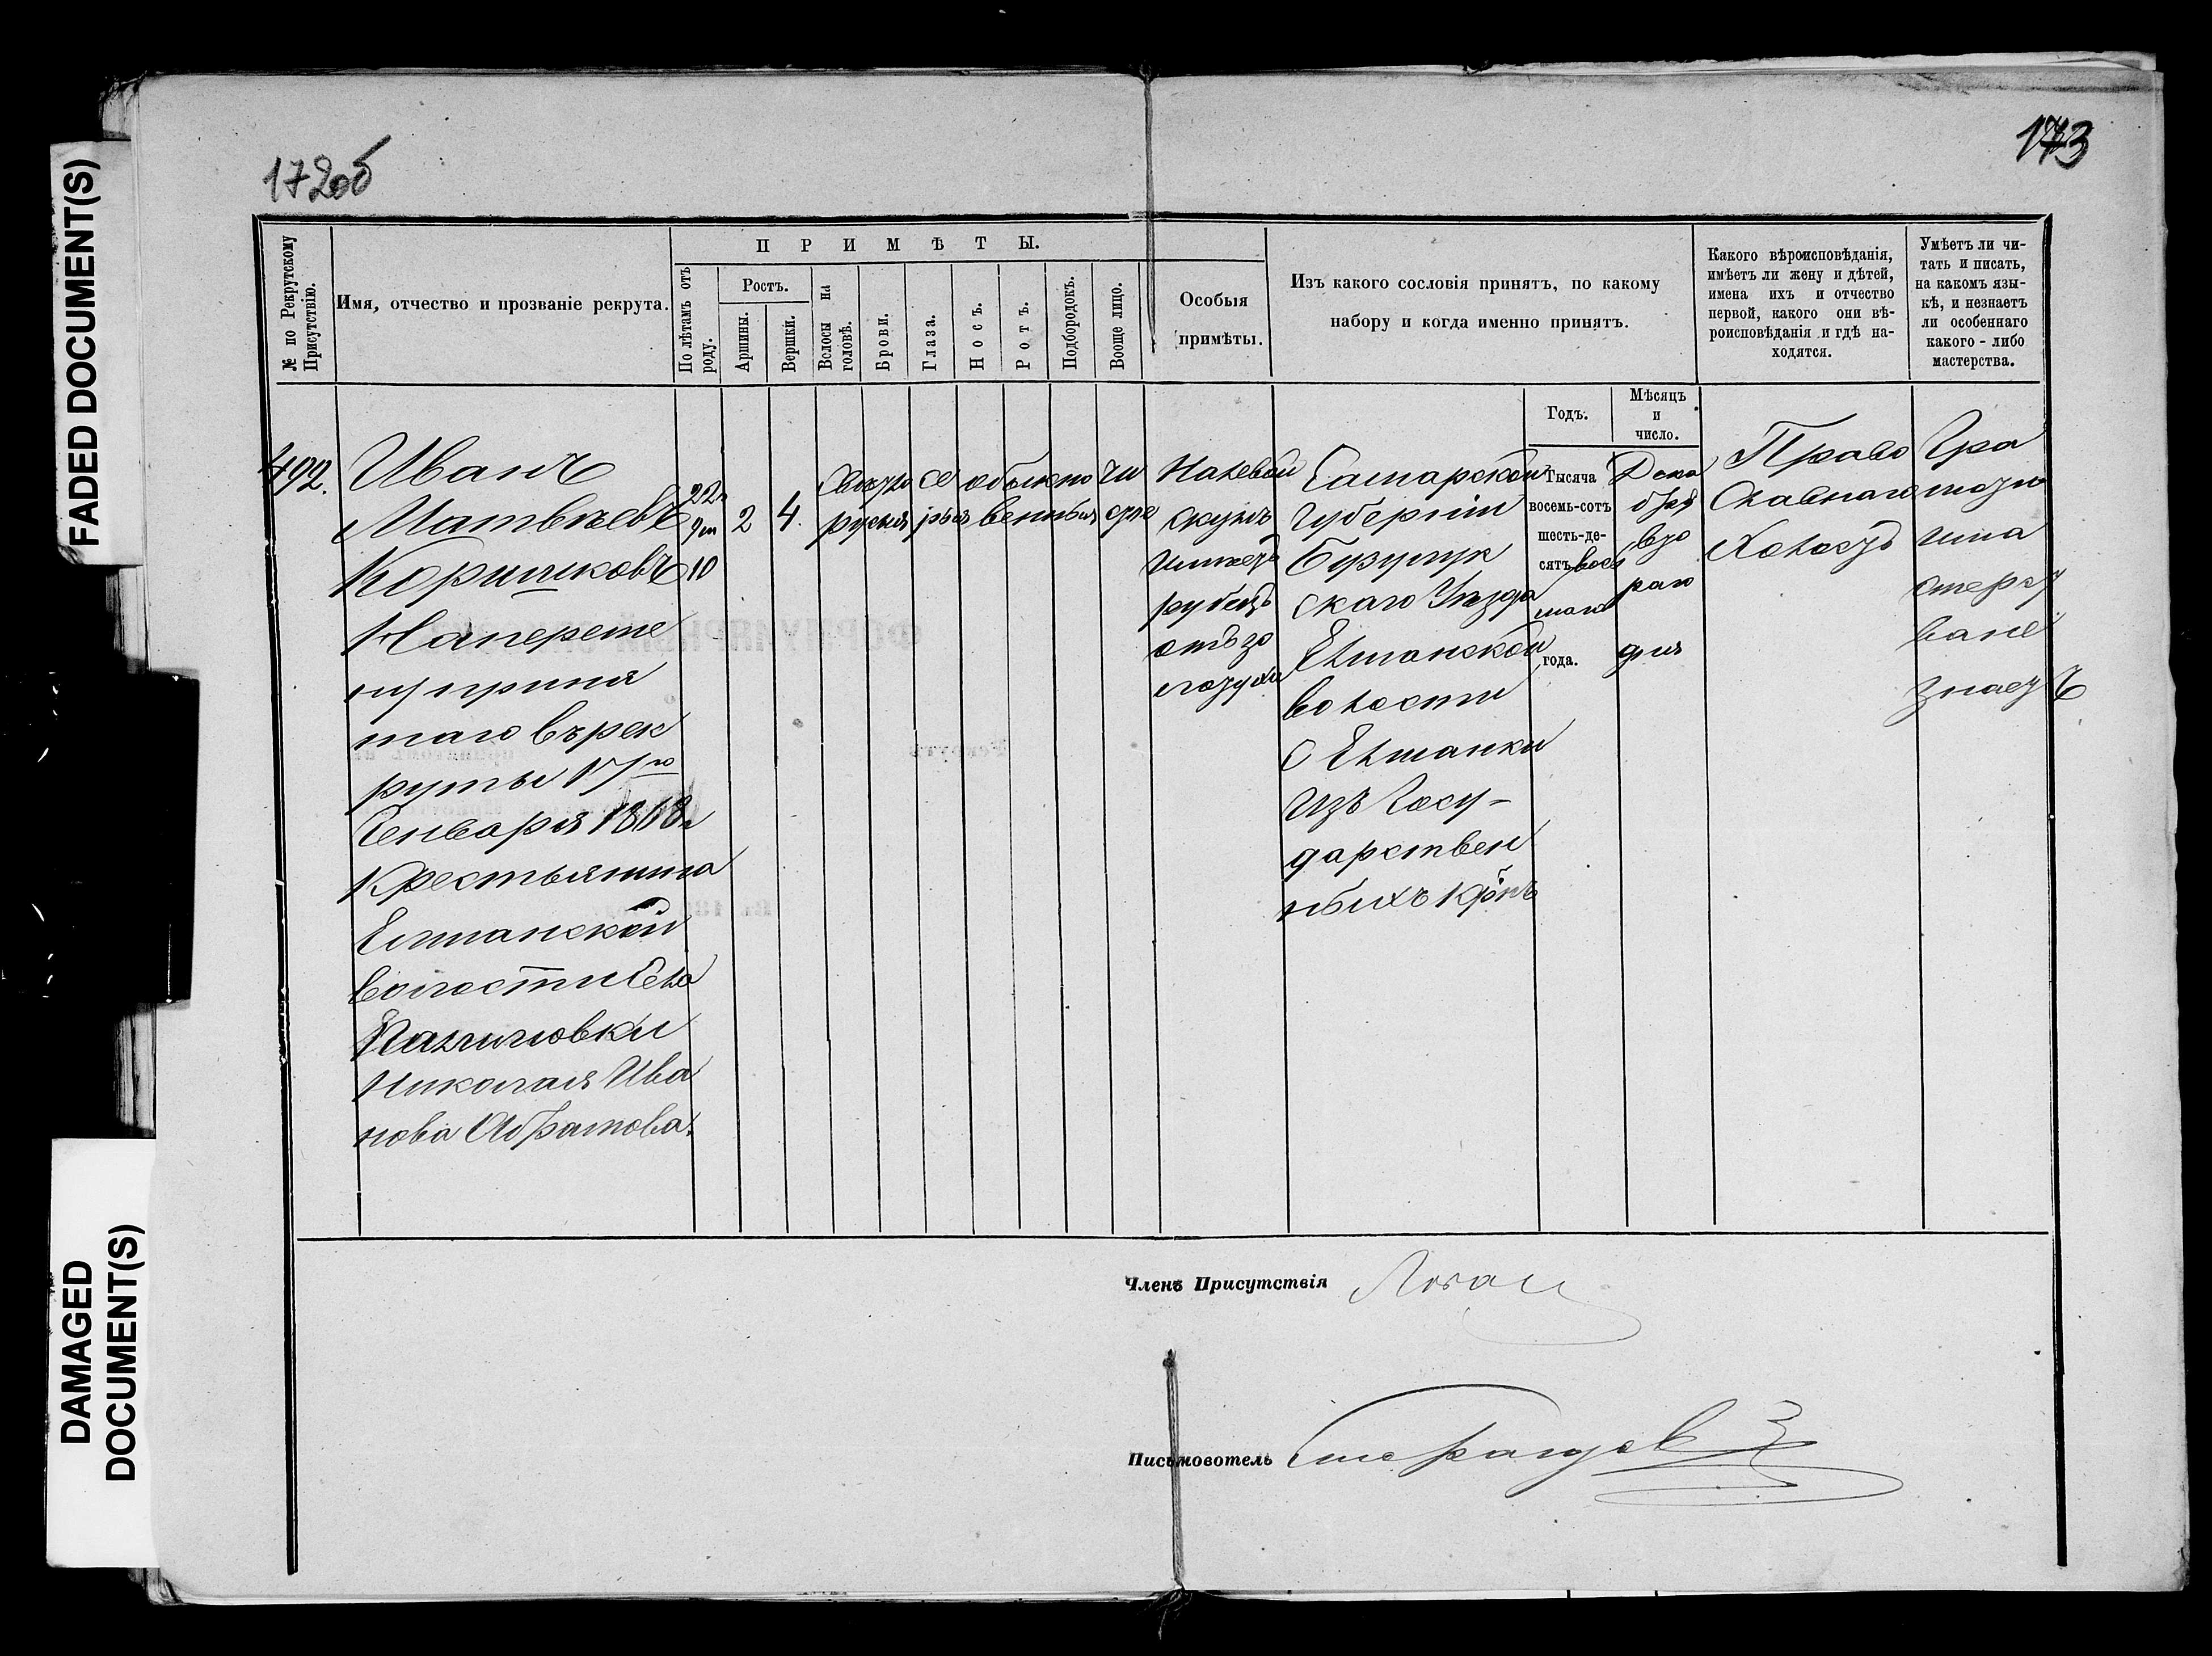 FADED DOCUMENT(S)
DAMAGED DOCUMENT(S)
172об
173
№ по Рекрутскому Присутствію.
Имя, отчество и прозваніе рекрута.
ПРИМѢТЫ.
По лѣтамъ отъ роду.
Ростъ.
Аршины.
Вершки.
Волосы на головѣ.
Брови.
Глаза.
Носъ.
Ротъ.
Подбородокъ.
Вооще лицо.
Особыя
примѣты.
Изъ какого сословія принятъ, по какому
набору и когда именно принятъ.
Какого вѣроисповѣданія,
имѣетъ ли жену и дѣтей,
имена ихъ и отчество
первой, какого они вѣ-
роисповѣданія и гдѣ на-
ходятся.
Умѣетъ ли чи-
тать и писать,
на какомъ язы-
кѣ, и незнаетъ
ли особеннаго
какого-либо
мастерства.
Годъ.
Мѣсяцъ
и
число.
492.
Иванъ
Матвѣевъ
Коршиковъ
На пере
ту приня
таго въ рек
руты 17го
Генваря 1868
Крестьянина
Елшанской
волости села
Николая Ива
нова Абрамова.
22
10
2
4.
Свѣтло
русыя
се
рыя
обыкно
венныя
чи
стое
На левой
скулѣ
имѣетъ
рубецъ
отъ зо
лотухи
Самарской
губерніи
Бузулук
скаго Уѣзда
Елшанской
волости
с Елшанки
изъ Госу-
дарствен
ныхъ кр-нъ
Тысяча
восемь-сотъ
шесть-де-
сятъ вось
маго
года.
Дека
бря
вто
раго
дня
Право
славнаго
Холостъ
Гра
моты
и ма
стерст
ва не
знаетъ
Членъ Присутствія
Письмоводитель